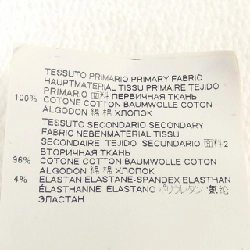 TESSUTO PRIMARIO PRIMARY FABRIC
HAUPTMATERIAL TISSU PRIMAIRE TEJIDO
PRIMARIO 面料 ПЕРВИЧНАЯ ТКАНЬ
100% COTONE COTTON BAUMWOLLE COTON
ALGODON 綿 棉 ХЛОПОК
TESSUTO SECONDARIO SECONDARY
FABRIC NEBENMATERIAL TISSU
SECONDAIRE TEJIDO SECUNDARIO 面料2
ВТОРИЧНАЯ ТКАНЬ
96% COTONE COTTON BAUMWOLLE COTON
ALGODON 綿 棉 ХЛОПОК
4% ELASTAN ELASTANE-SPANDEX ELASTHAN
ELASTHANNE ELASTANO ポリウレタン 氨纶
ЭЛАСТАН